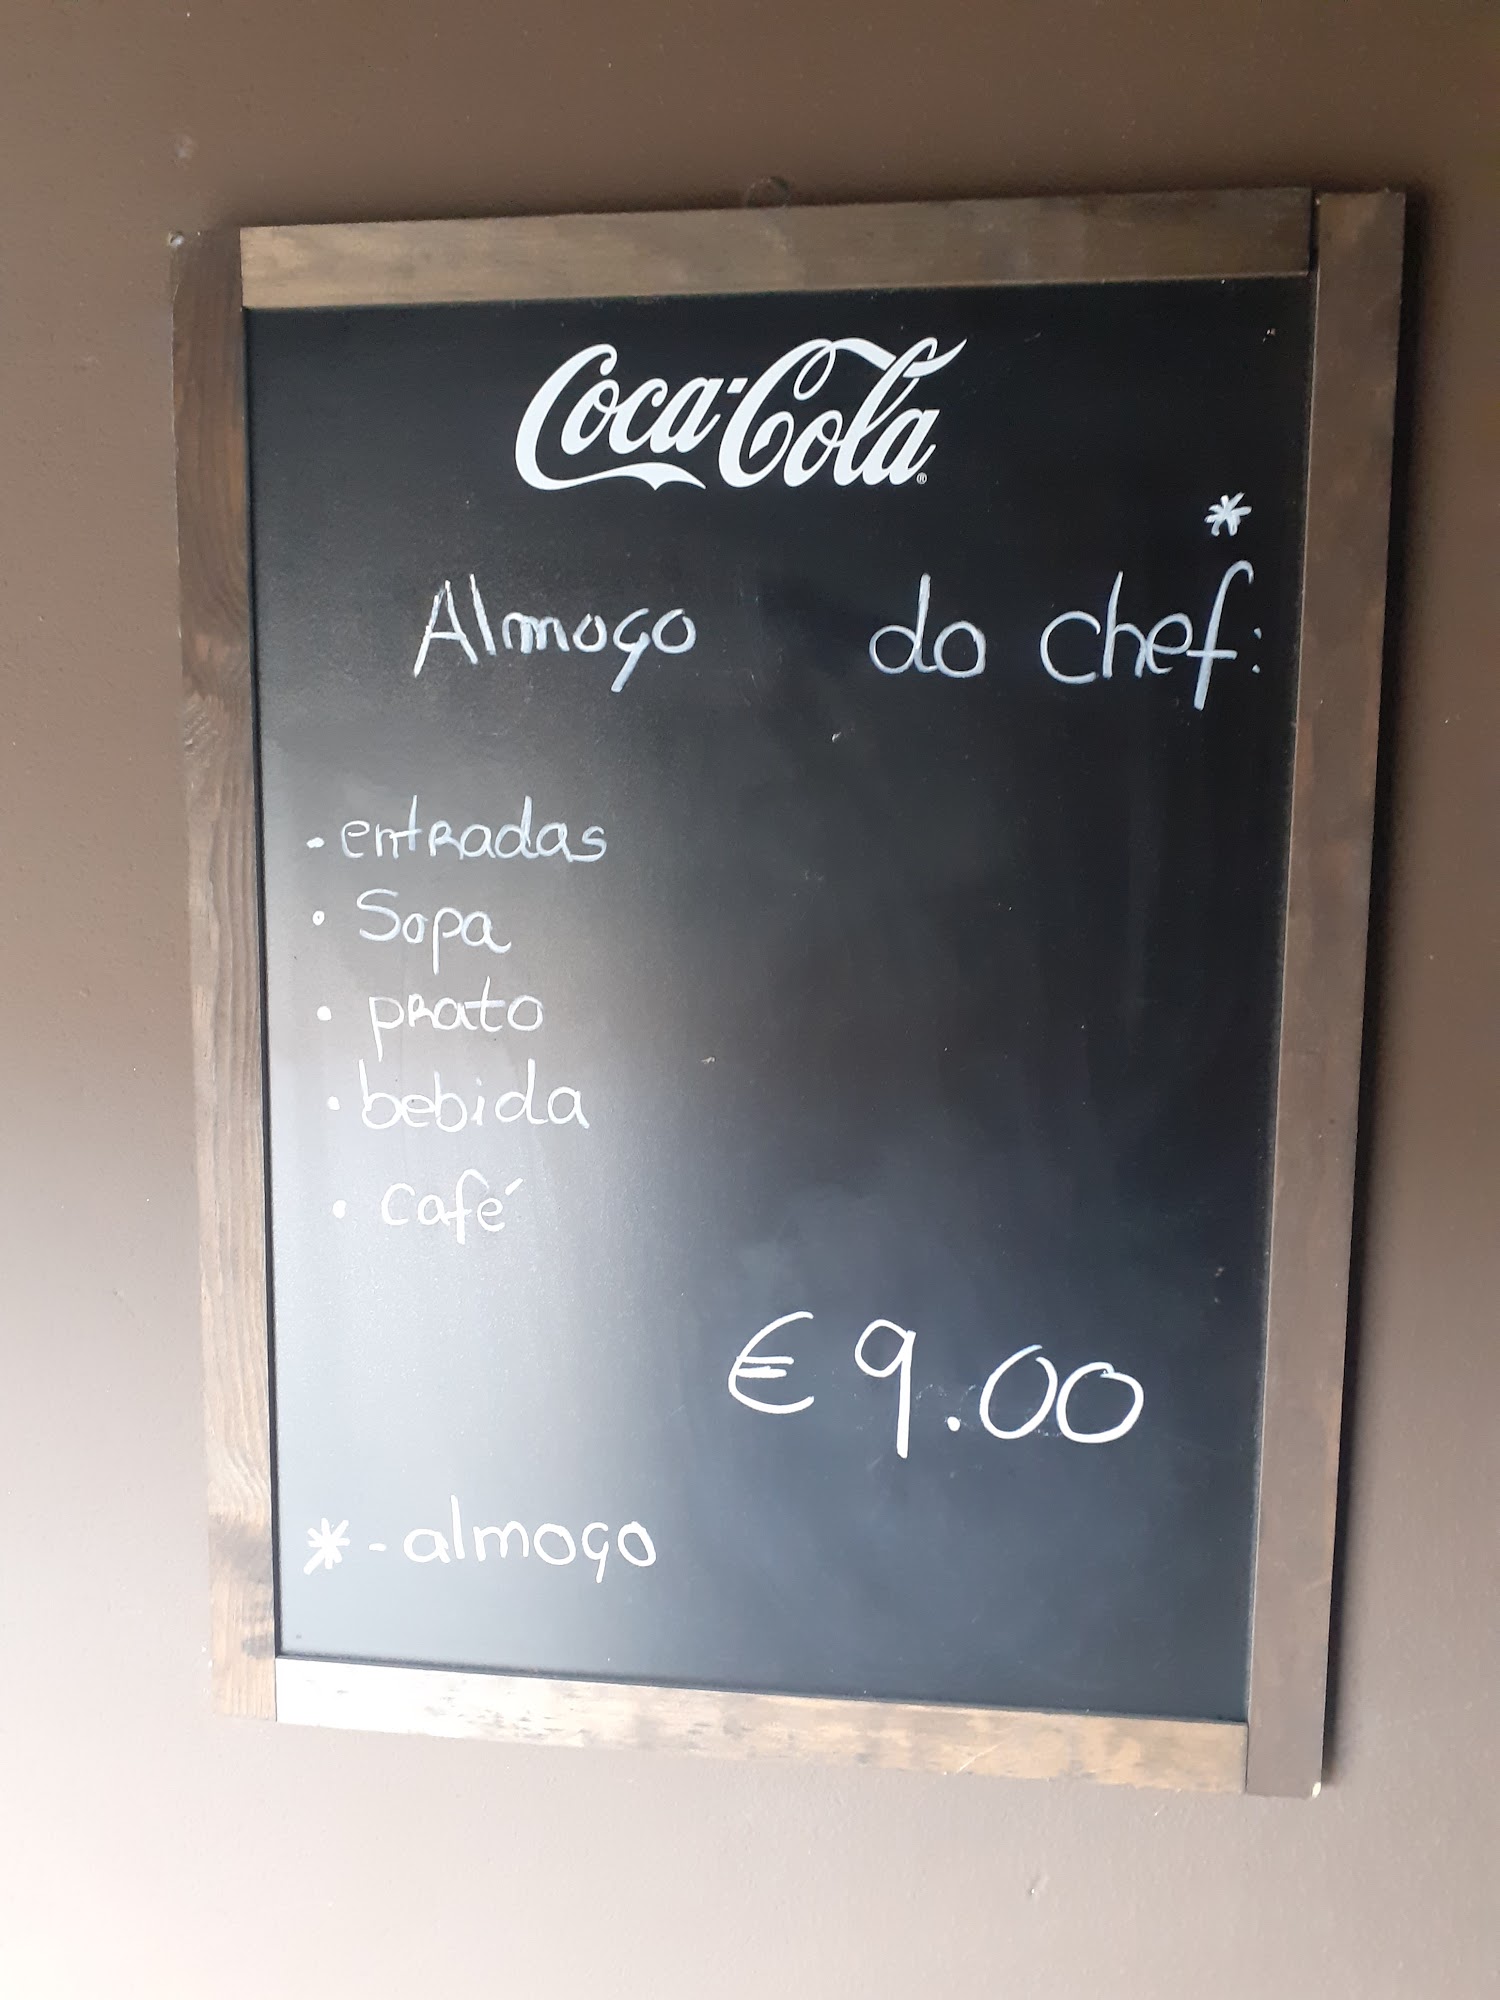 Coca-Cola
*
Almoço do chef:
- entradas
• Sopa
• prato
• bebida
• café
€ 9.00
* - almoço